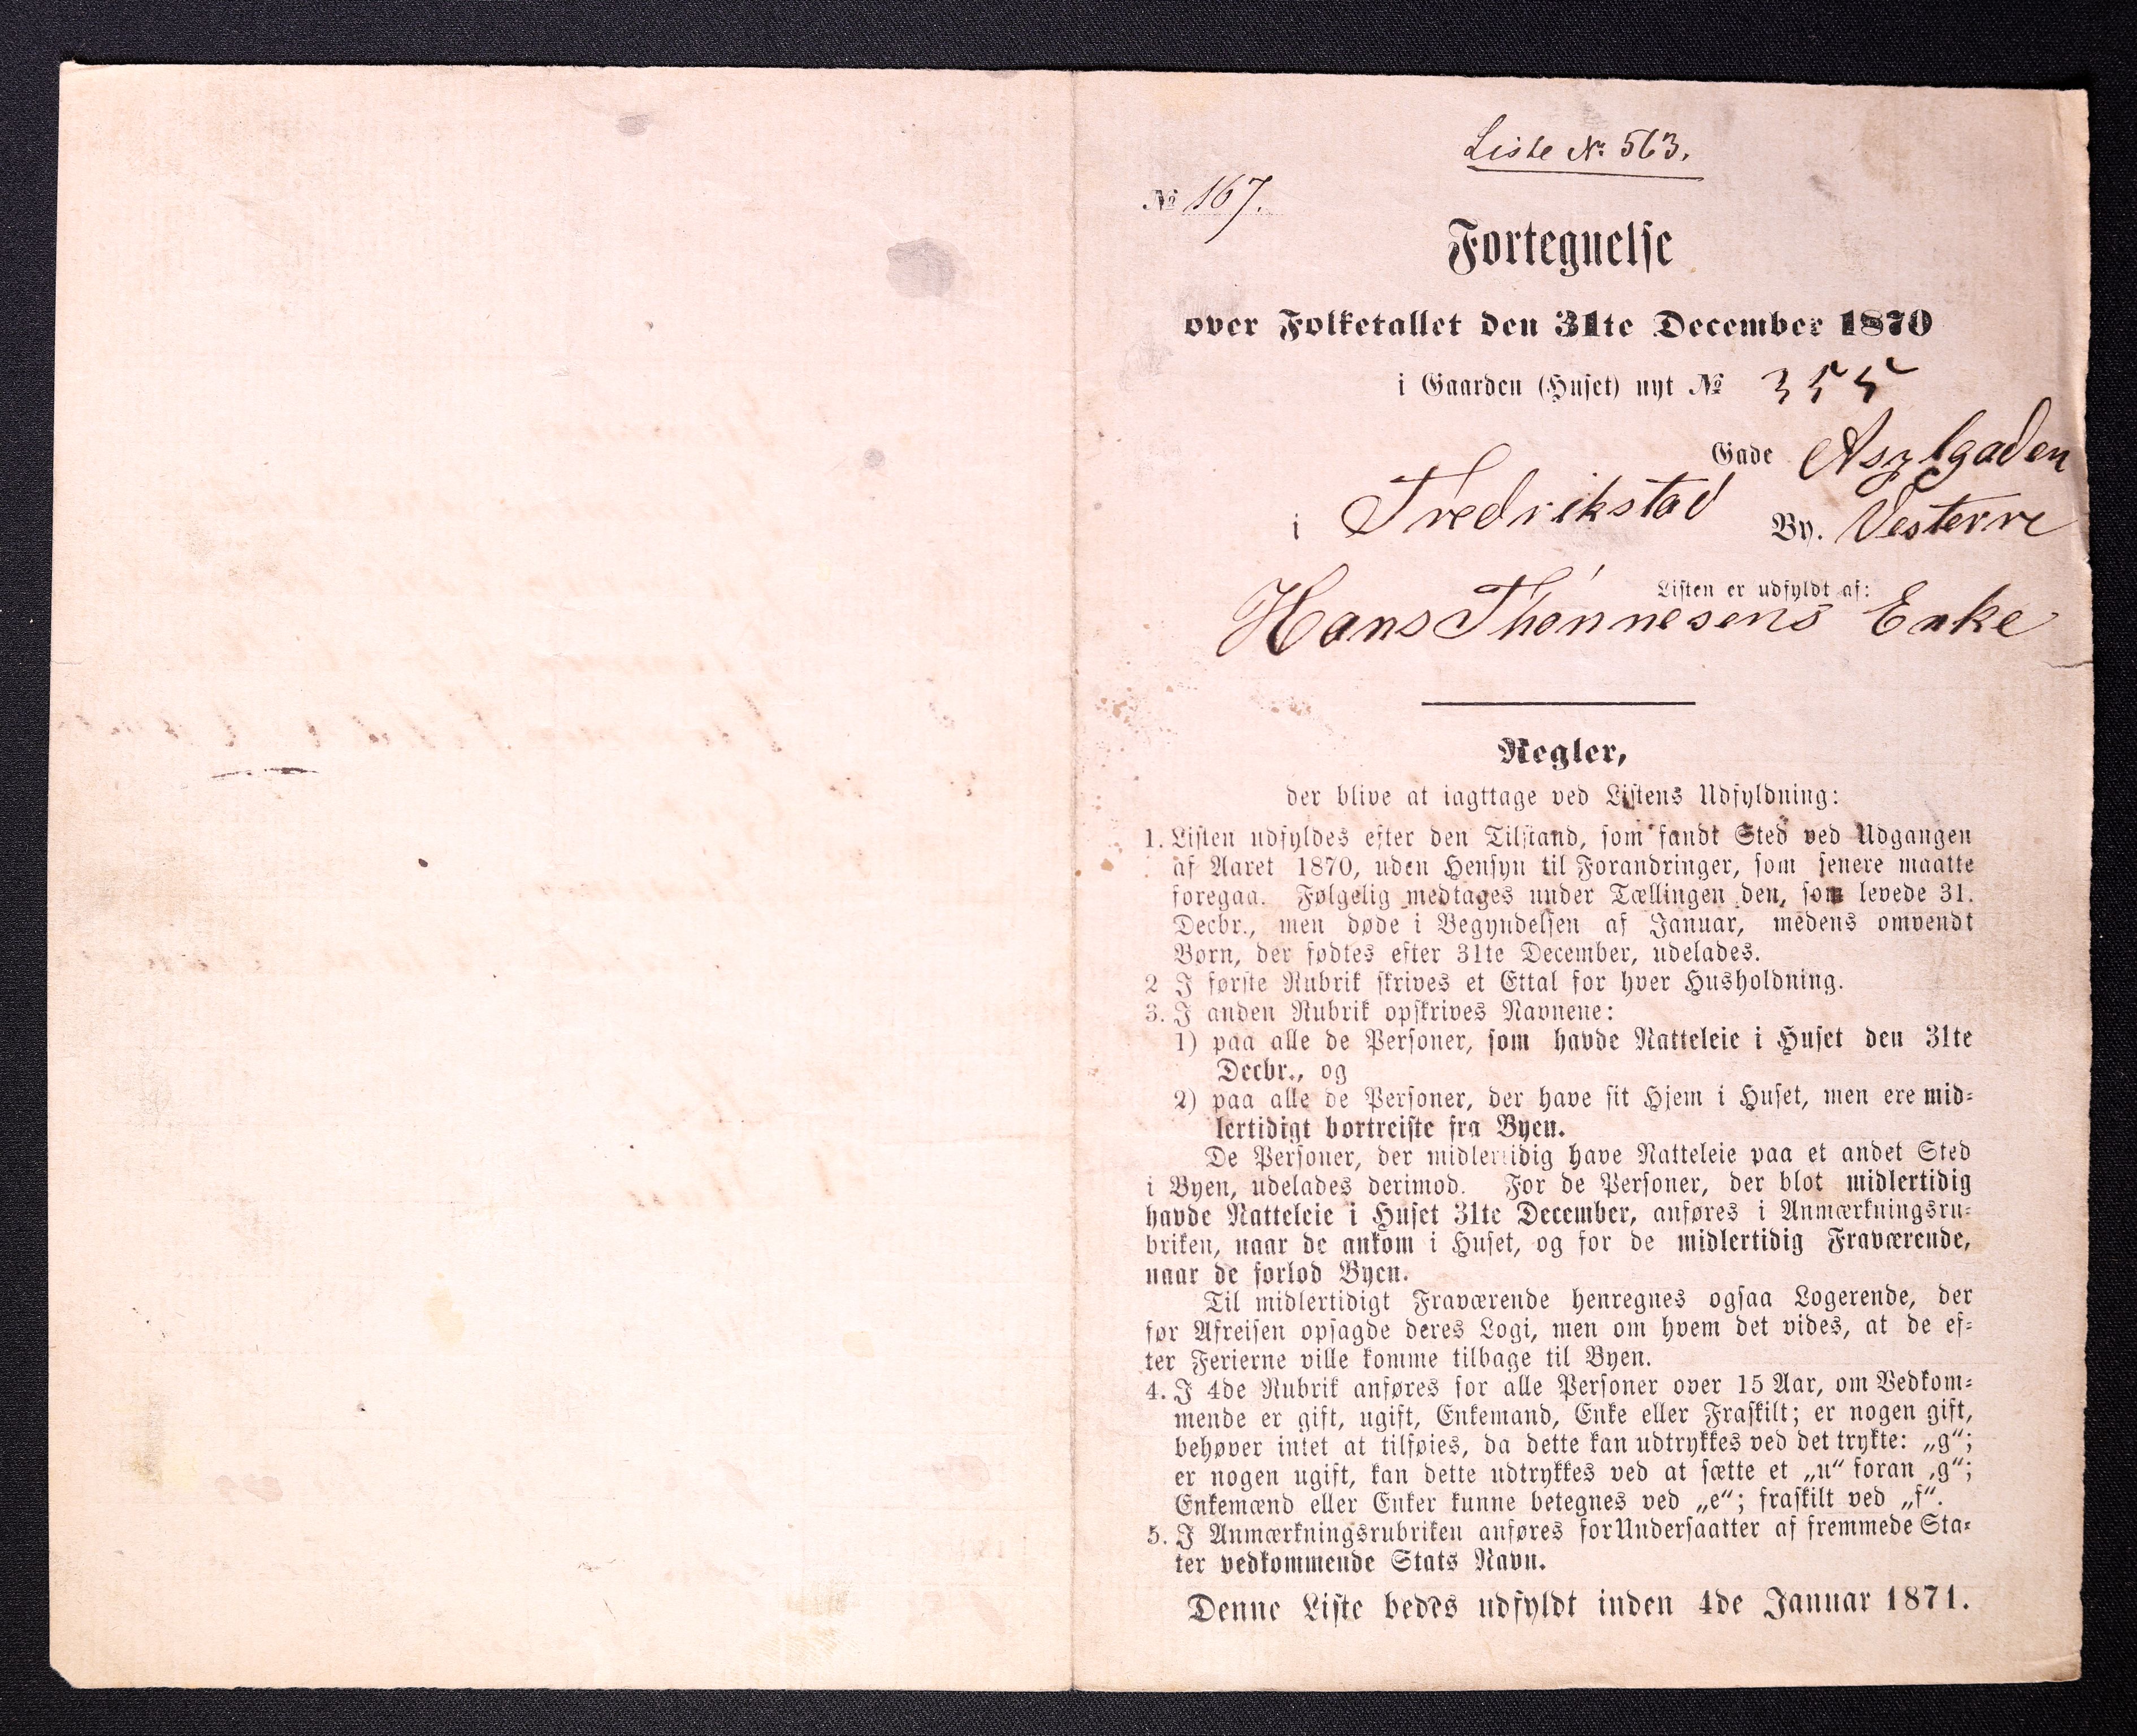 Liste № 563.
№ 167.
Fortegnelse
over Folketallet den 31te December 1870
i Gaarden (Huset) nyt № 355
Gade Asylgaden
i Fredrikstad By. Vesterre
Listen er udfyldt af:
Hans Thønnesens Enke
Regler,
der blive at iagttage ved Listens Udfyldning:
1. Listen udfyldes efter den Tilstand, som fandt Sted ved Udgangen
af Aaret 1870, uden Hensyn til Forandringer, som senere maatte
foregaa. Følgelig medtages under Tællingen den, som levede 31.
Decbr., men døde i Begyndelsen af Januar, medens omvendt
Børn, der fødtes efter 31te December, udelades.
2 I første Rubrik skrives et Ettal for hver Husholdning.
3. I anden Rubrik opskrives Navnene:
1) paa alle de Personer, som havde Natteleie i Huset den 31te
Decbr., og
2) paa alle de Personer, der have sit Hjem i Huset, men ere mid-
lertidigt bortreiste fra Byen.
De Personer, der midlertidig have Natteleie paa et andet Sted
i Byen, udelades derimod. For de Personer, der blot midlertidig
havde Natteleie i Huset 31te December, anføres i Anmærkningsru-
briken, naar de ankom i Huset, og for de midlertidig Fraværende,
naar de forlod Byen.
Til midlertidigt Fraværende henregnes ogsaa Logerende, der
før Afreisen opsagde deres Logi, men om hvem det vides, at de ef-
ter Ferierne ville komme tilbage til Byen.
4. I 4de Rubrik anføres for alle Personer over 15 Aar, om Vedkom-
mende er gift, ugift, Enkemand, Enke eller Fraskilt; er nogen gift,
behøver intet at tilføies, da dette kan udtrykkes ved det trykte: „g“;
er nogen ugift, kan dette udtrykkes ved at sætte et „u“ foran ‚g“;
Enkemænd eller Enker kunne betegnes ved „e“; fraskilt ved „f“.
5. I Anmærkningsrubriken anføres for Undersaatter af fremmede Sta-
ter vedkommende Stats Navn.
Denne Liste bedes udfyldt inden 4de Januar 1871.